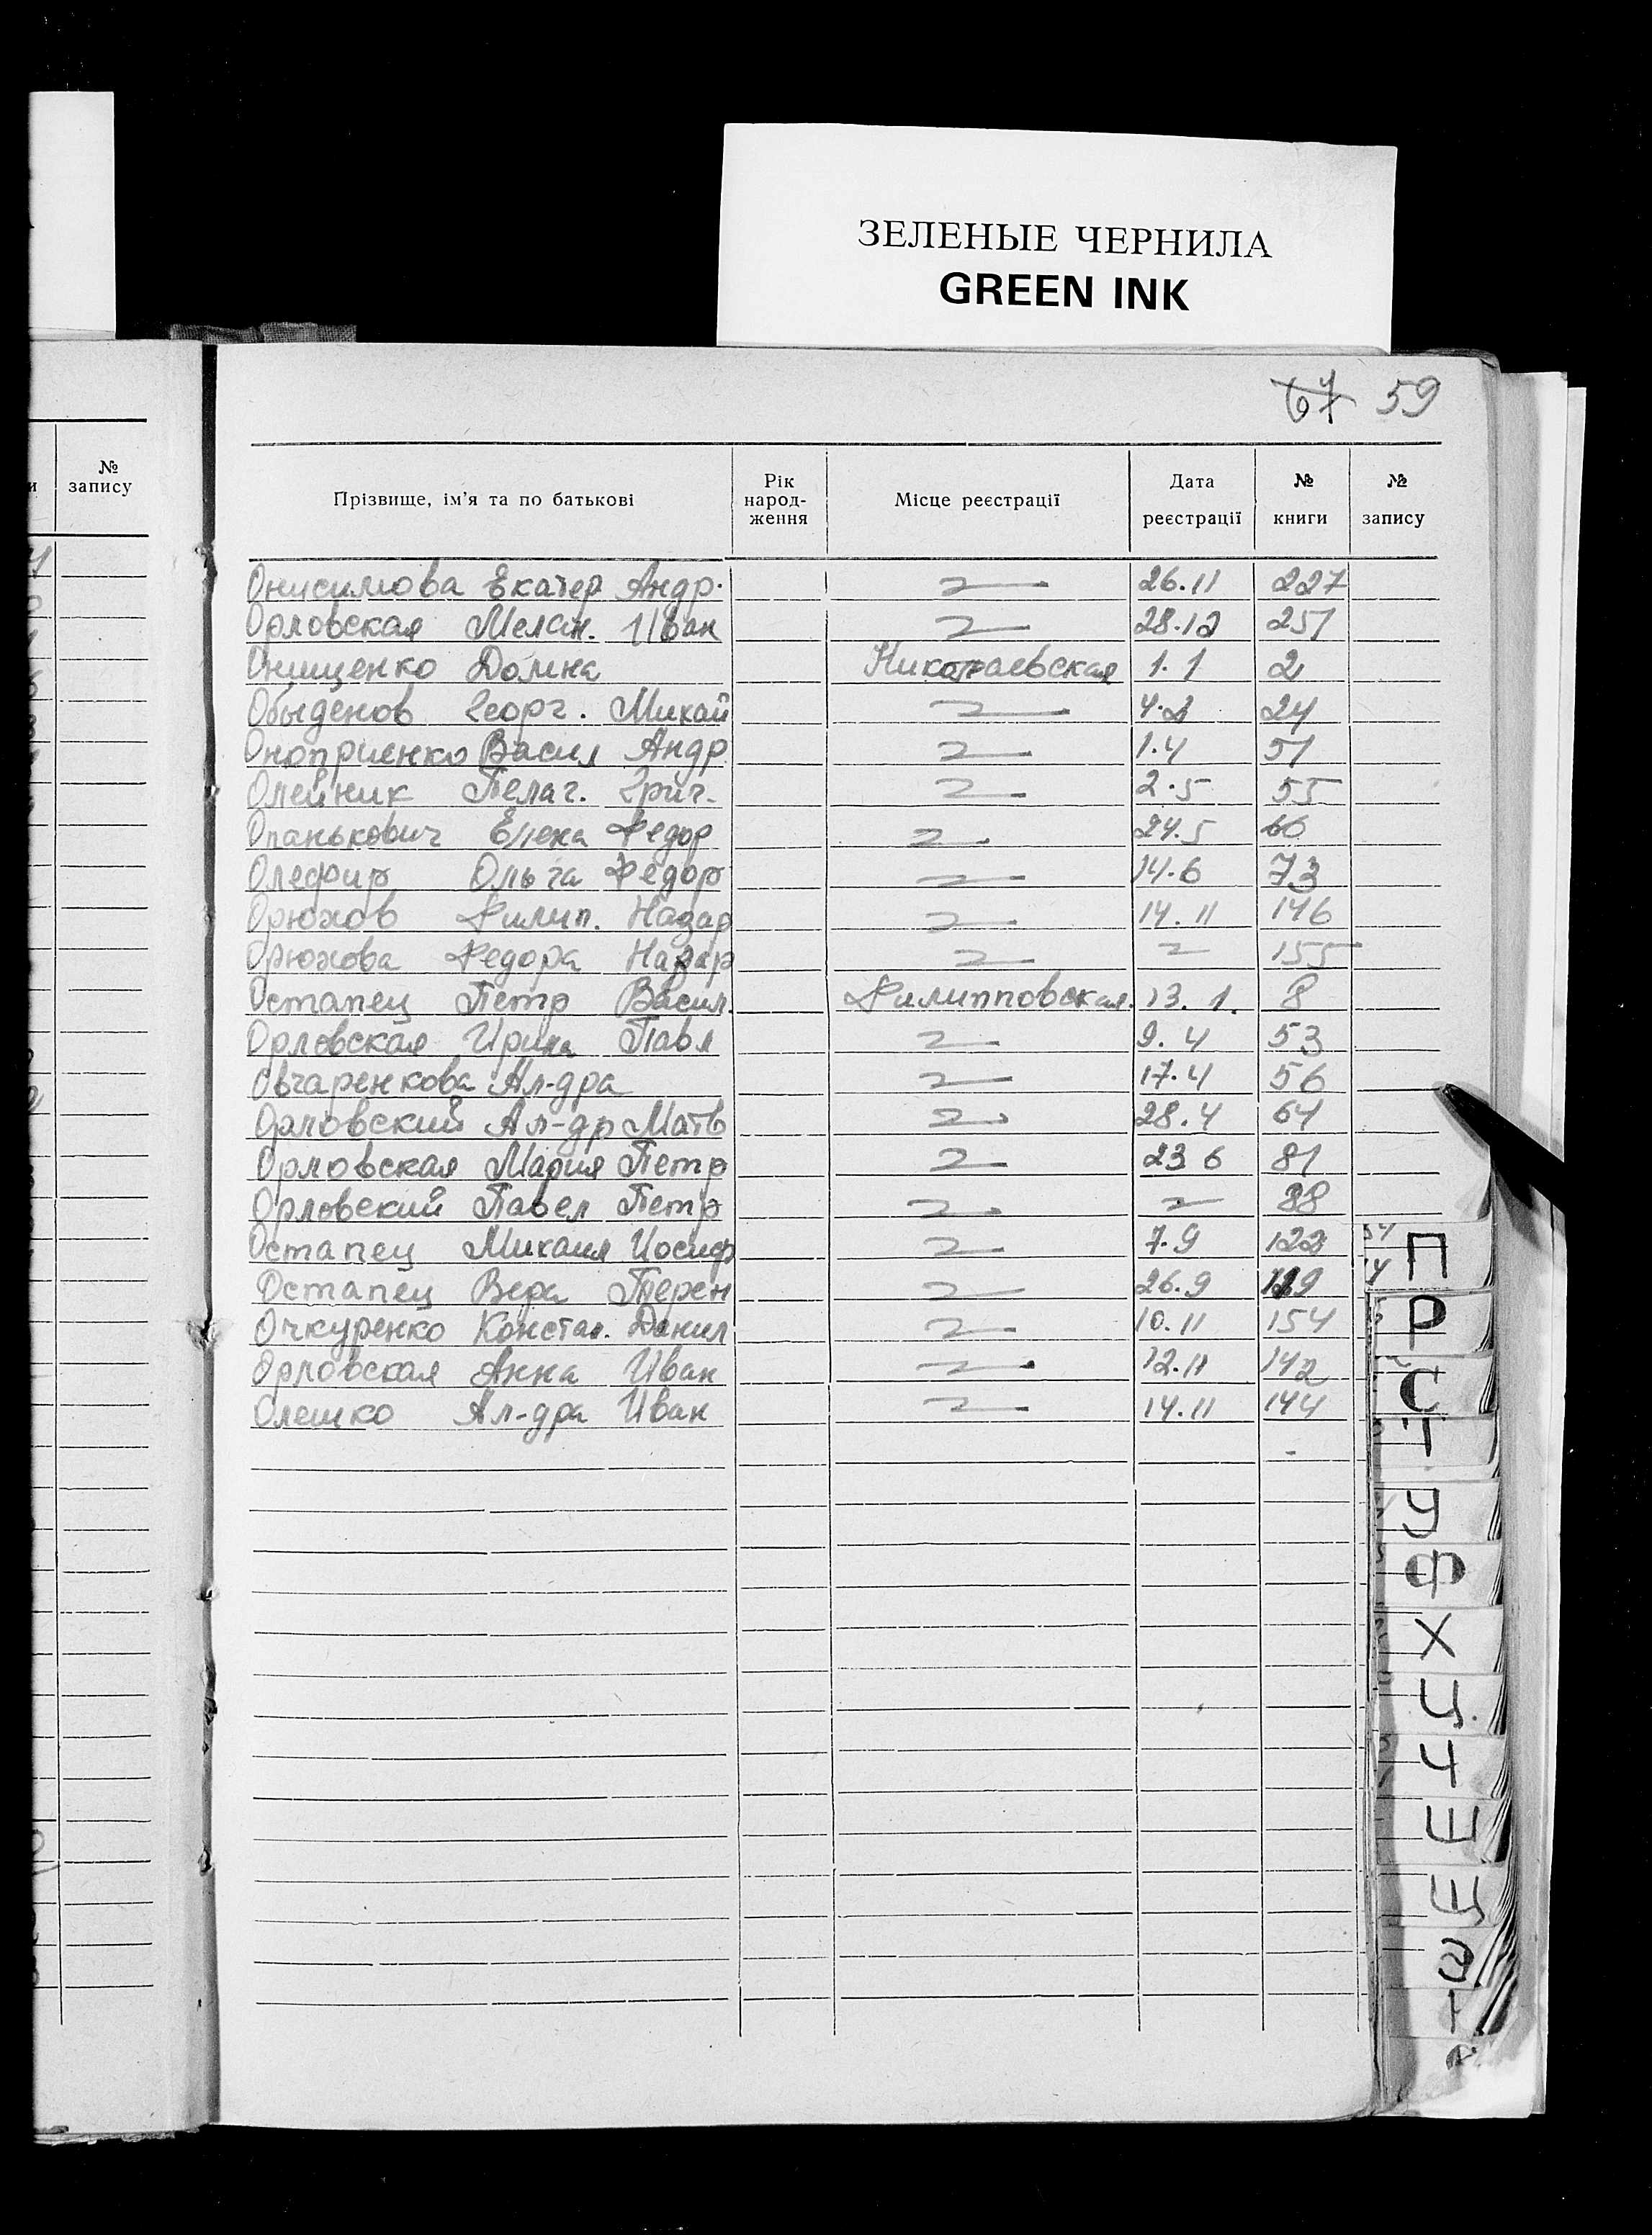 ЗЕЛЕНЫЕ ЧЕРНИЛА
GREEN INK
67 59
№ запису
Прізвище, ім'я та по батькові Рік народ-ження Місце реєстрації Дата реєстрації № книги № запису
Онисимова Екатер Андр. 26.11 227
Орловская Мелан. Иван 28.12 251
Онищенко Домна Николаевская 1.1 2
Обыденов Георг. Михай 4.2 24
Оноприенко Васил Андр 1.4 51
Олейник Пелаг. Григ. 2.5 55
Опанькович Елена Федор 24.5 66
Олефир Ольга Федор 14.6 73
Орюхов Филип. Назар 14.11 146
Орюхова Федора Назар 155
Остапец Петр Васил. Филипповская. 13.1. 8
Орловская Ирина Павл 9.4 53
Овчаренкова Ал-дра 17.4 56
Орловский Ал-др Матв 28.4 64
Орловская Мария Петр 23 6 81
Орловский Павел Петр 88
Остапец Михаил Иосиф 7.9 122
Остапец Вера Терен 26.9 129
Очкуренко Констан. Данил 10.11 154
Орловская Анна Иван 12.11 142
Олешко Ал-дра Иван 14.11 144
П
Р
С
Т
У
Ф
Х
Ц
Ч
Ш
Щ